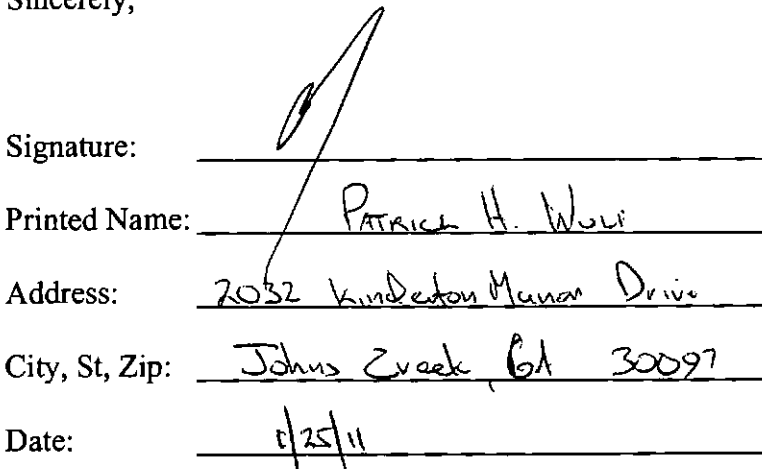 Sincerely,
Signature:
Printed Name: PATRICK H. WULI
Address: 2032 Kinderton Manor Drive
City, St, Zip: Johns Creek, GA 30097
Date: 1/25/11